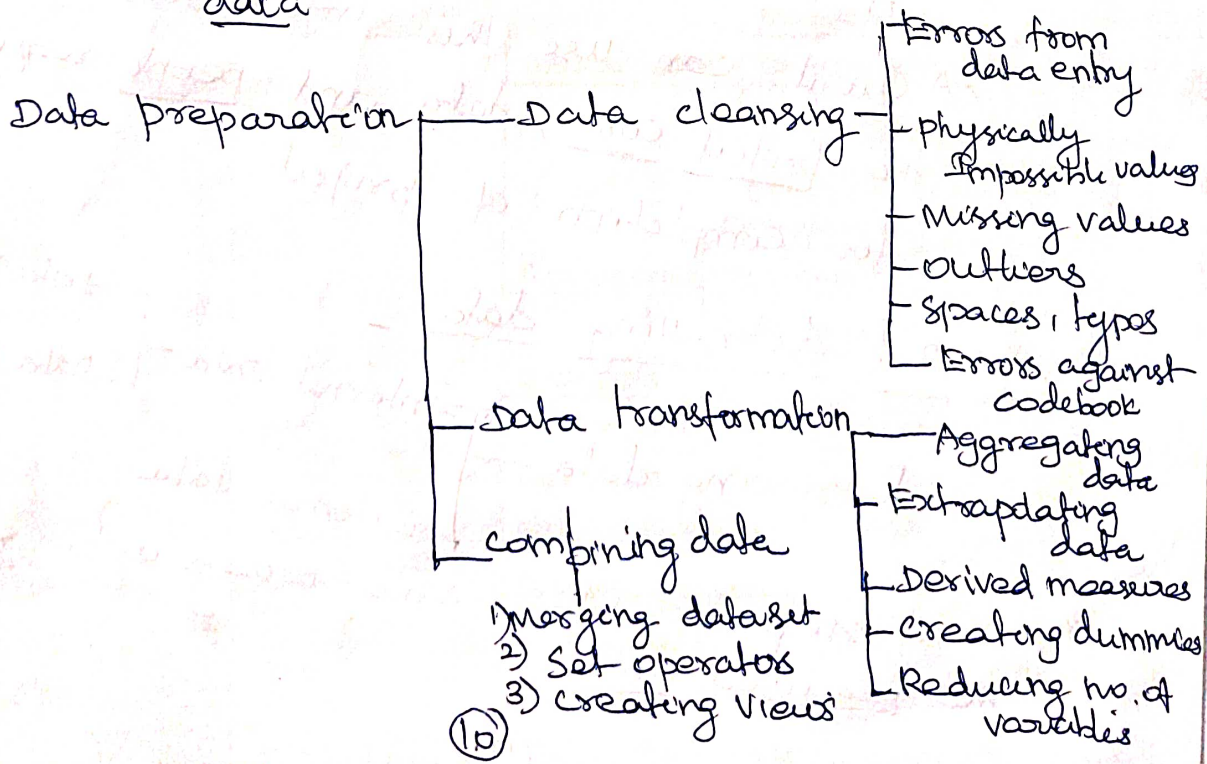 data
Data preparation
Data cleansing
Errors from
data entry
physically
Impossible values
Missing values
outliers
Spaces, typos
Errors against
codebook
Data transformation
Aggregating
data
Extrapolating
data
Derived measures
creating dummies
Reducing no. of
variables
combining data
1) Merging dataset
2) Set operators
3) creating views
10